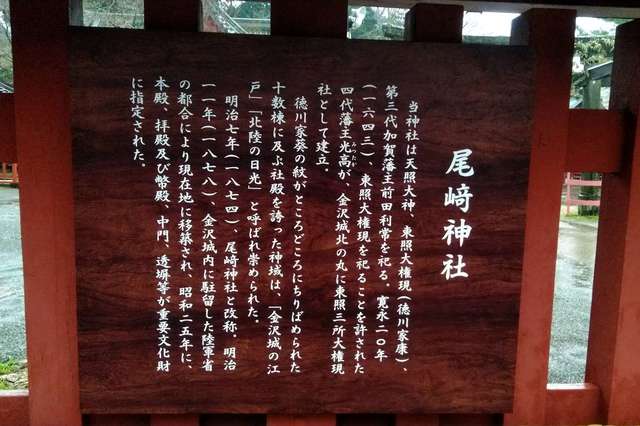 尾﨑神社
当神社は天照大神、東照大権現(徳川家康)、
第三代加賀藩主前田利常を祀る。寛永二〇年
(一六四三)、東照大権現を祀ることを許された
四代藩主光高が、金沢城北の丸に東照三所大権現
みつたか
社として建立。
徳川家葵の紋がところどころにちりばめられた
十数棟に及ぶ社殿を誇った神域は、「金沢城の江
戸」「北陸の日光」と呼ばれ崇められた。
明治七年(一八七四)、尾﨑神社と改称。明治
一一年(一八七八)、金沢城内に駐留した陸軍省
の都合により現在地に移築され、昭和二五年に、
本殿、拝殿及び幣殿、中門、透塀等が重要文化財
に指定された。